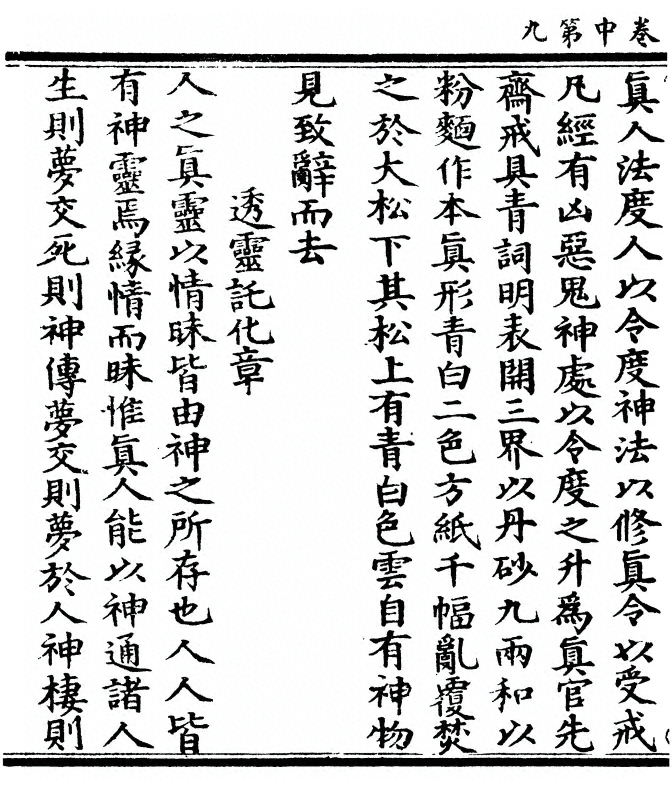 卷中第九
眞人法度人以令度神法以修眞令以受戒
凡經有凶惡鬼神處以令度之升爲眞官先
齋戒具青詞明表開三界以丹砂九兩和以
粉麵作本眞形青白二色方紙千幅亂覆焚
之於大松下其松上有青白色雲自有神物
見致辭而去
透靈託化章
人之眞靈以情昧皆由神之所存也人人皆
有神靈焉緣情而昧惟眞人能以神通諸人
生則夢交死則神傳夢交則夢於人神棲則